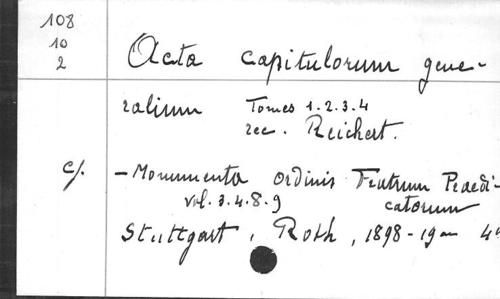 108
10
2
Acta capitulorum gene-
ralium Tomes 1.2.3.4
rec. Reichert.
c/. - Monumenta ordinis Fratrum Praedi-
vol. 3.4.8.9 catorum
Stuttgart, Roth, 1898-19 4°